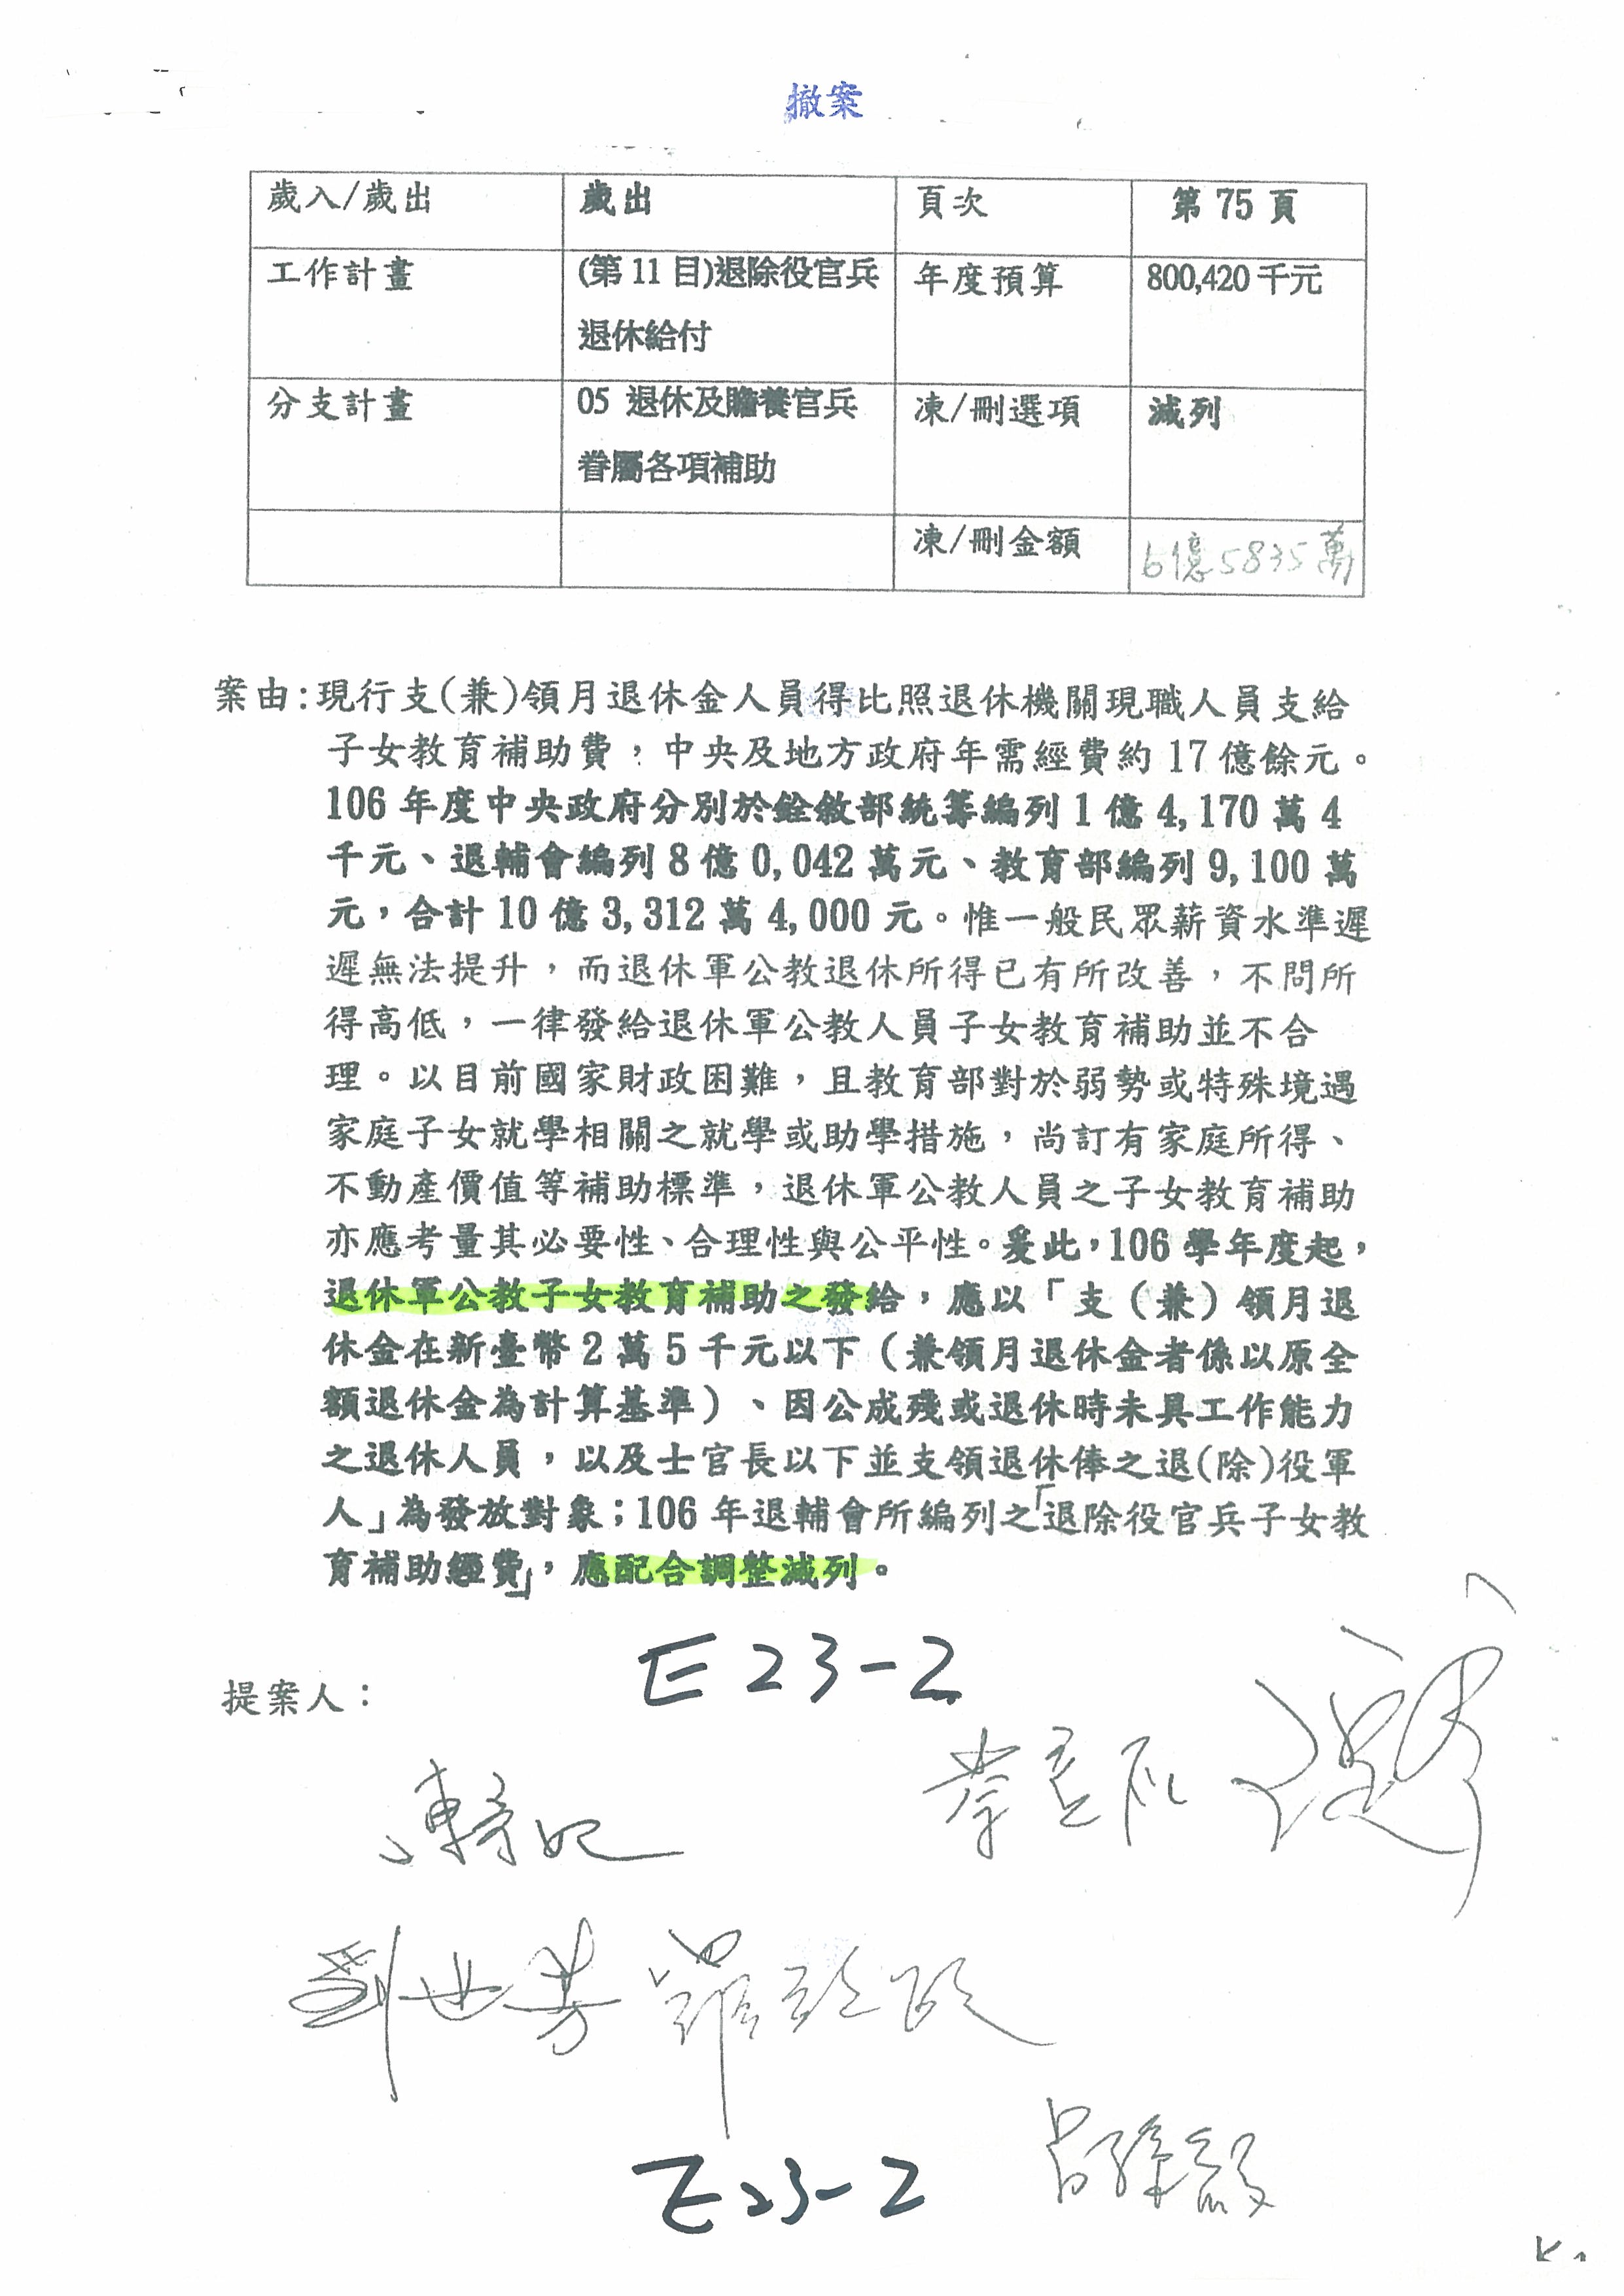 撤案
歲入/歲出 歲出 頁次 第 75 頁
工作計畫 (第 11 目)退除役官兵 年度預算 800,420 千元
退休給付
分支計畫 05 退休及贍養官兵 凍/刪選項 減列
眷屬各項補助
凍/刪金額 6億5835萬
案由:現行支(兼)領月退休金人員得比照退休機關現職人員支給
子女教育補助費,中央及地方政府年需經費約 17 億餘元。
106 年度中央政府分別於銓敘部統籌編列 1 億 4,170 萬 4
千元、退輔會編列 8 億 0,042 萬元、教育部編列 9,100 萬
元,合計 10 億 3,312 萬 4,000 元。惟一般民眾薪資水準遲
遲無法提升,而退休軍公教退休所得已有所改善,不問所
得高低,一律發給退休軍公教人員子女教育補助並不合
理。以目前國家財政困難,且教育部對於弱勢或特殊境遇
家庭子女就學相關之就學或助學措施,尚訂有家庭所得、
不動產價值等補助標準,退休軍公教人員之子女教育補助
亦應考量其必要性、合理性與公平性。爰此,106 學年度起,
退休軍公教子女教育補助之發給,應以「支(兼)領月退
休金在新臺幣 2 萬 5 千元以下(兼領月退休金者係以原全
額退休金為計算基準)、因公成殘或退休時未具工作能力
之退休人員,以及士官長以下並支領退休俸之退(除)役軍
人」為發放對象;106 年退輔會所編列之「退除役官兵子女教
育補助經費」,應配合調整減列。
E23-2
提案人:
劉世芳 羅致政
E23-2
呂孫綾